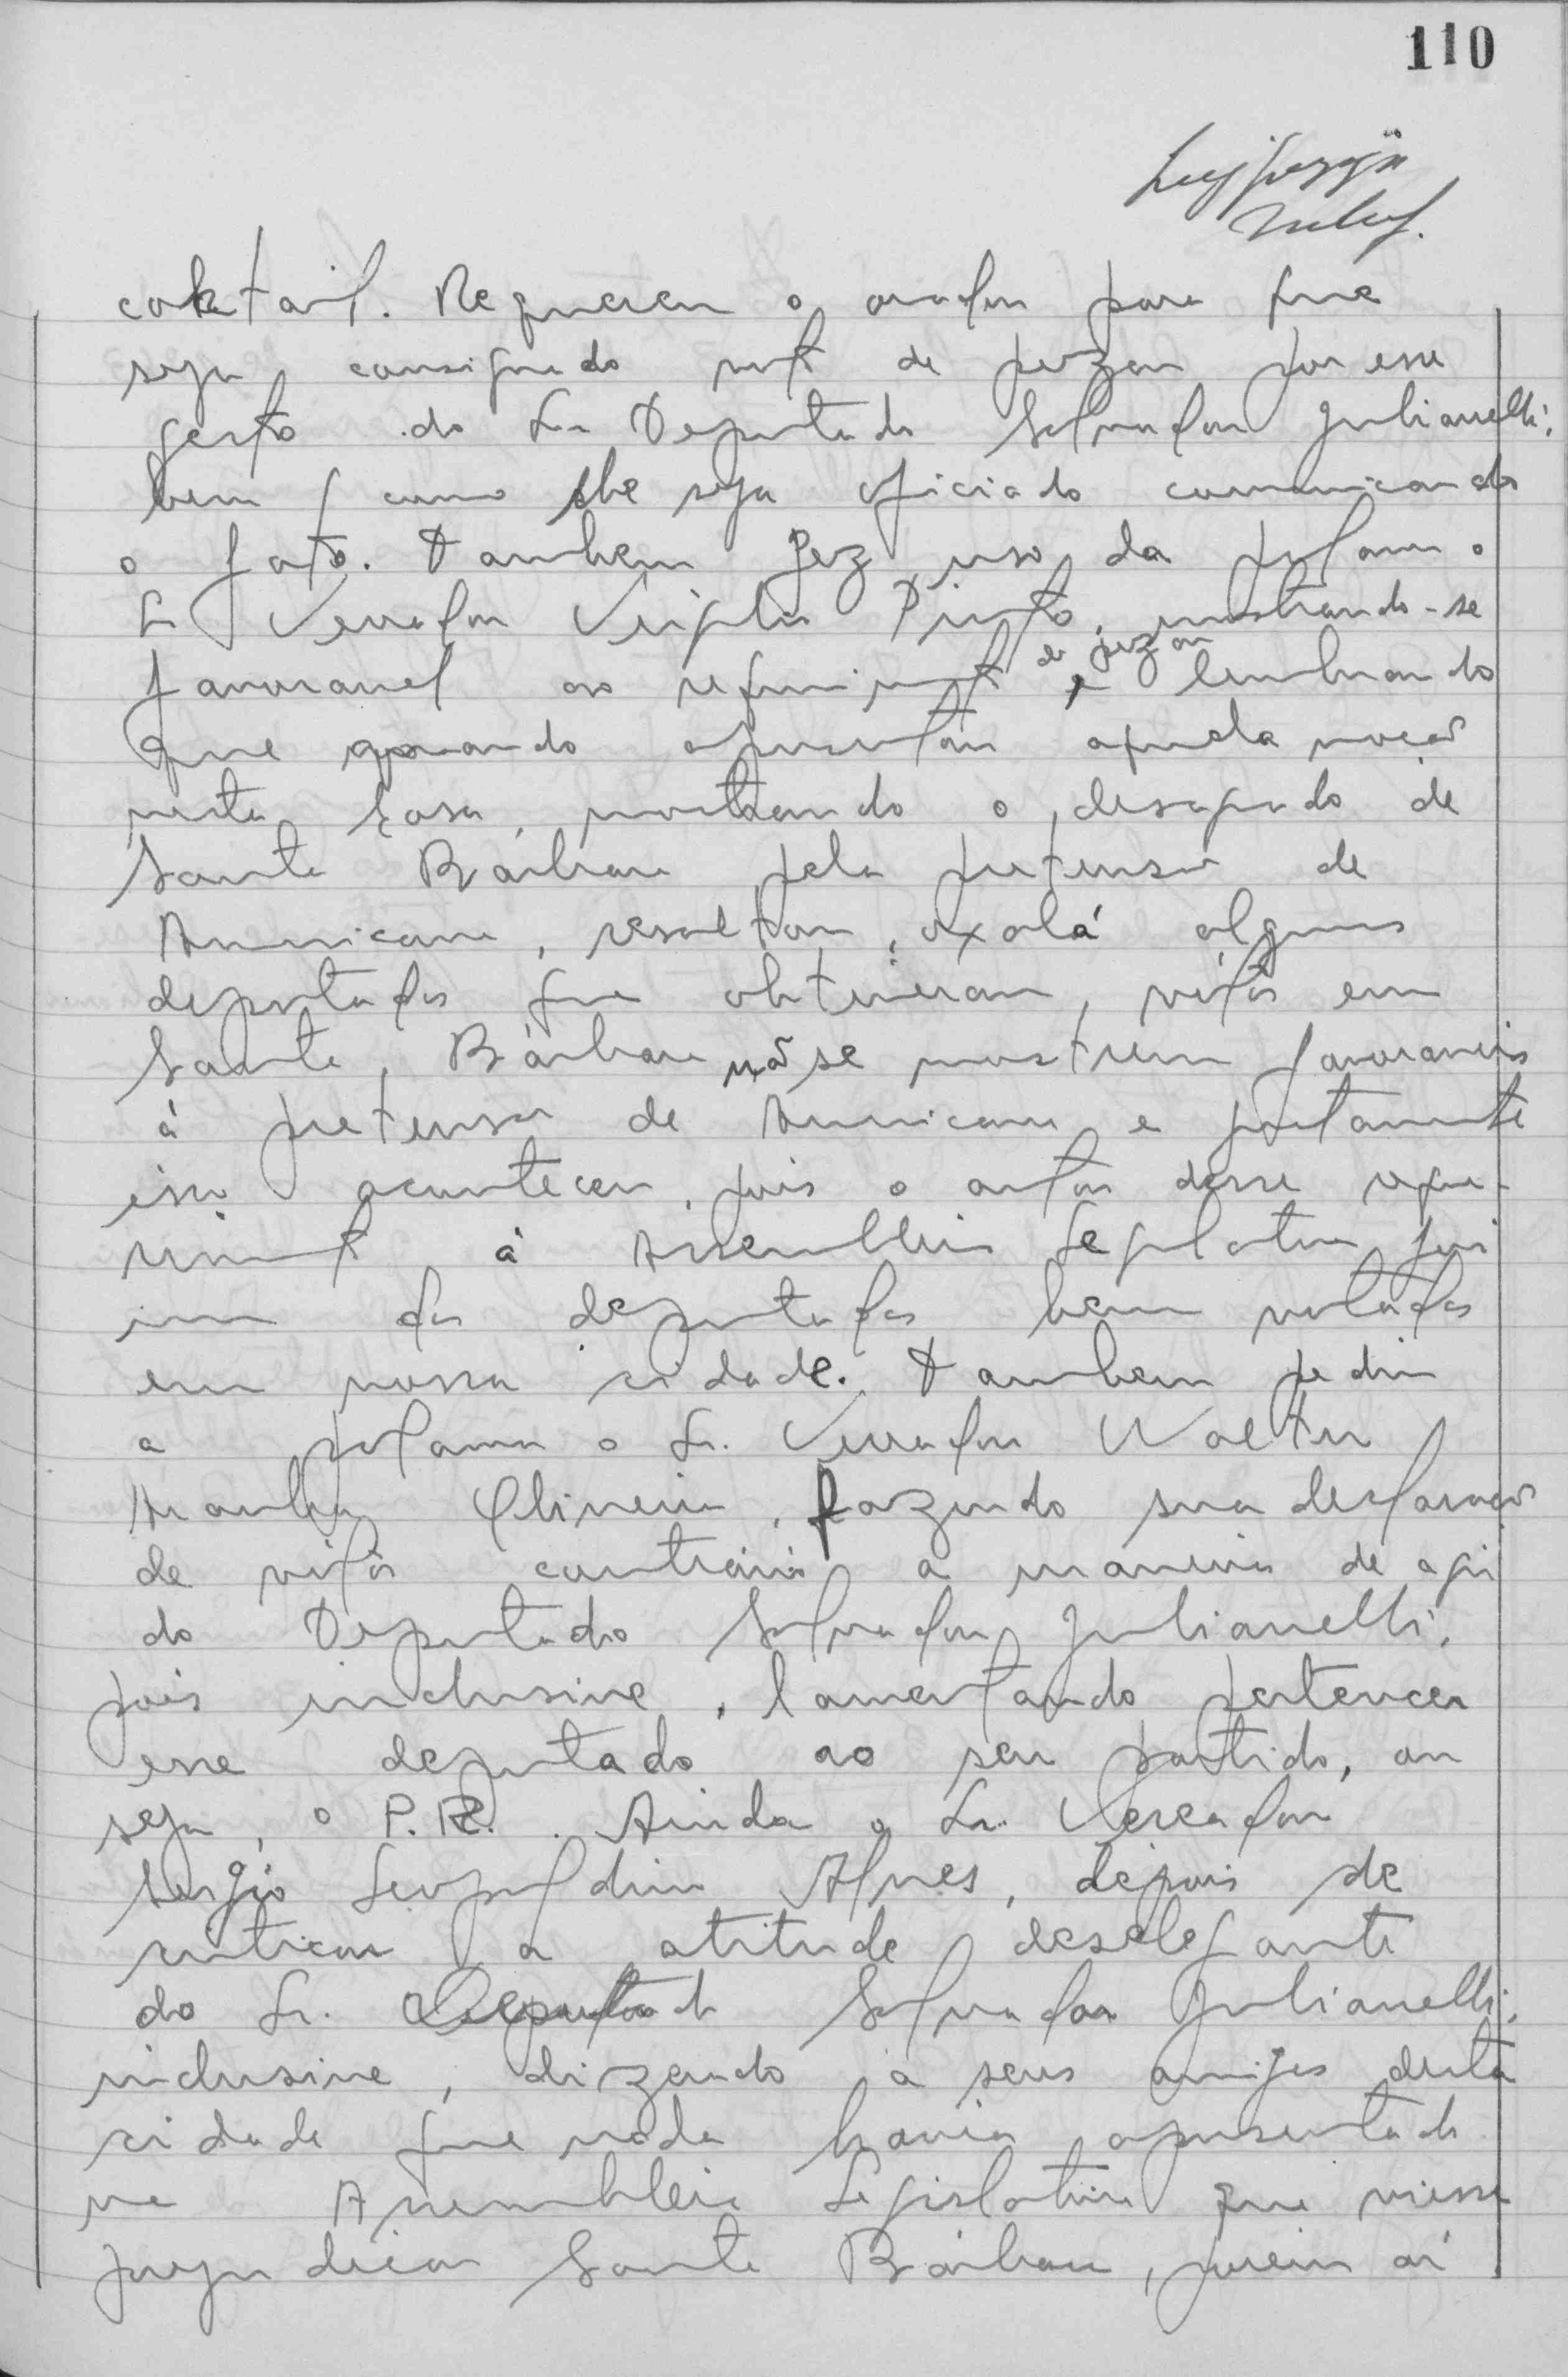 110
coktail. Requereu o orador para que
seja consignado voto de pezar por esse
gesto do Sr Deputado Salvador Julianelli,
bem como lhe seja oficiado comunicando
o fato. Tambem fez uso da palavra o
Sr Vereador Pinto, mostrando-se
favoravel ao requerimento de pezar e lembrando
que quando apresentou aquela moção
nesta Casa, mostrando o desagrado de
Santa Bárbara pela pretensão de
Americana, resaltou, oxalá alguns
deputados que obtiveram votos em
Santa Bárbara não se mostrem favoraveis
á pretensão de Americana e justamente
isso aconteceu, pois o autor desse reque-
rimento á Assembleia Legislativa foi
um dos deputados bem votados
em nossa cidade. Tambem pediu
a palavra o Sr. Vereador Walter
Aranha Oliveira, fazendo sua declaração
de votos contrária a maneira de agir
do Deputado Salvador Julianelli,
pois inclusive, lamentando pertencer
esse deputado ao seu partido, ou
seja, o P.R. Ainda o Sr. Vereador
Sergio Leopoldino Alves, depois de
criticar a atitude deselegante
do Sr. Deputado Salvador Julianelli,
inclusive, dizendo a seus amigos desta
cidade que nada havia apresentado
na Assembleia Legislativa que viesse
prejudicar Santa Bárbara, porem aí